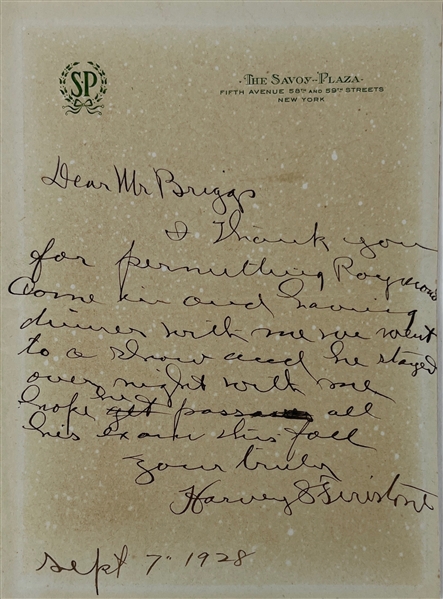 SP
· THE SAVOY-PLAZA ·
FIFTH AVENUE 58TH AND 59TH STREETS
NEW YORK
Dear Mr Briggs
I Thank you
for permitting Raymond
Come in and having
dinner with me we went
to a show and he stayed
over night with me
hope he pass all
his exam this fall
your truly
Harvey S Firestone
Sept 7" 1928